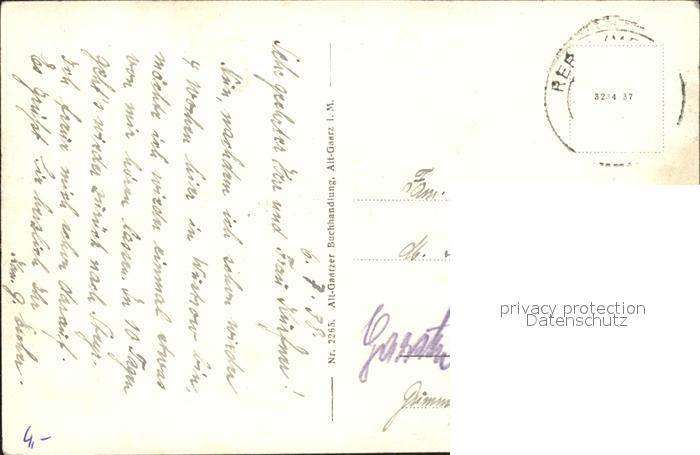 6. 7. 38
Sehr geehrter Herr und Frau
Nun, nachdem ich schon wieder
4 Wochen hier in Wustrow bin,
möchte ich wieder einmal etwas
von mir hören lassen. In 10 Tagen
geht's wieder zurück nach
Ich freue mich schon darauf.
Es grüßt Sie herzlich Ihr
4,-
Nr. 2265. Alt-Gaarzer Buchhandlung, Alt-Gaarz i. M.
RER
3234 37
Fam.
privacy protection
Datenschutz